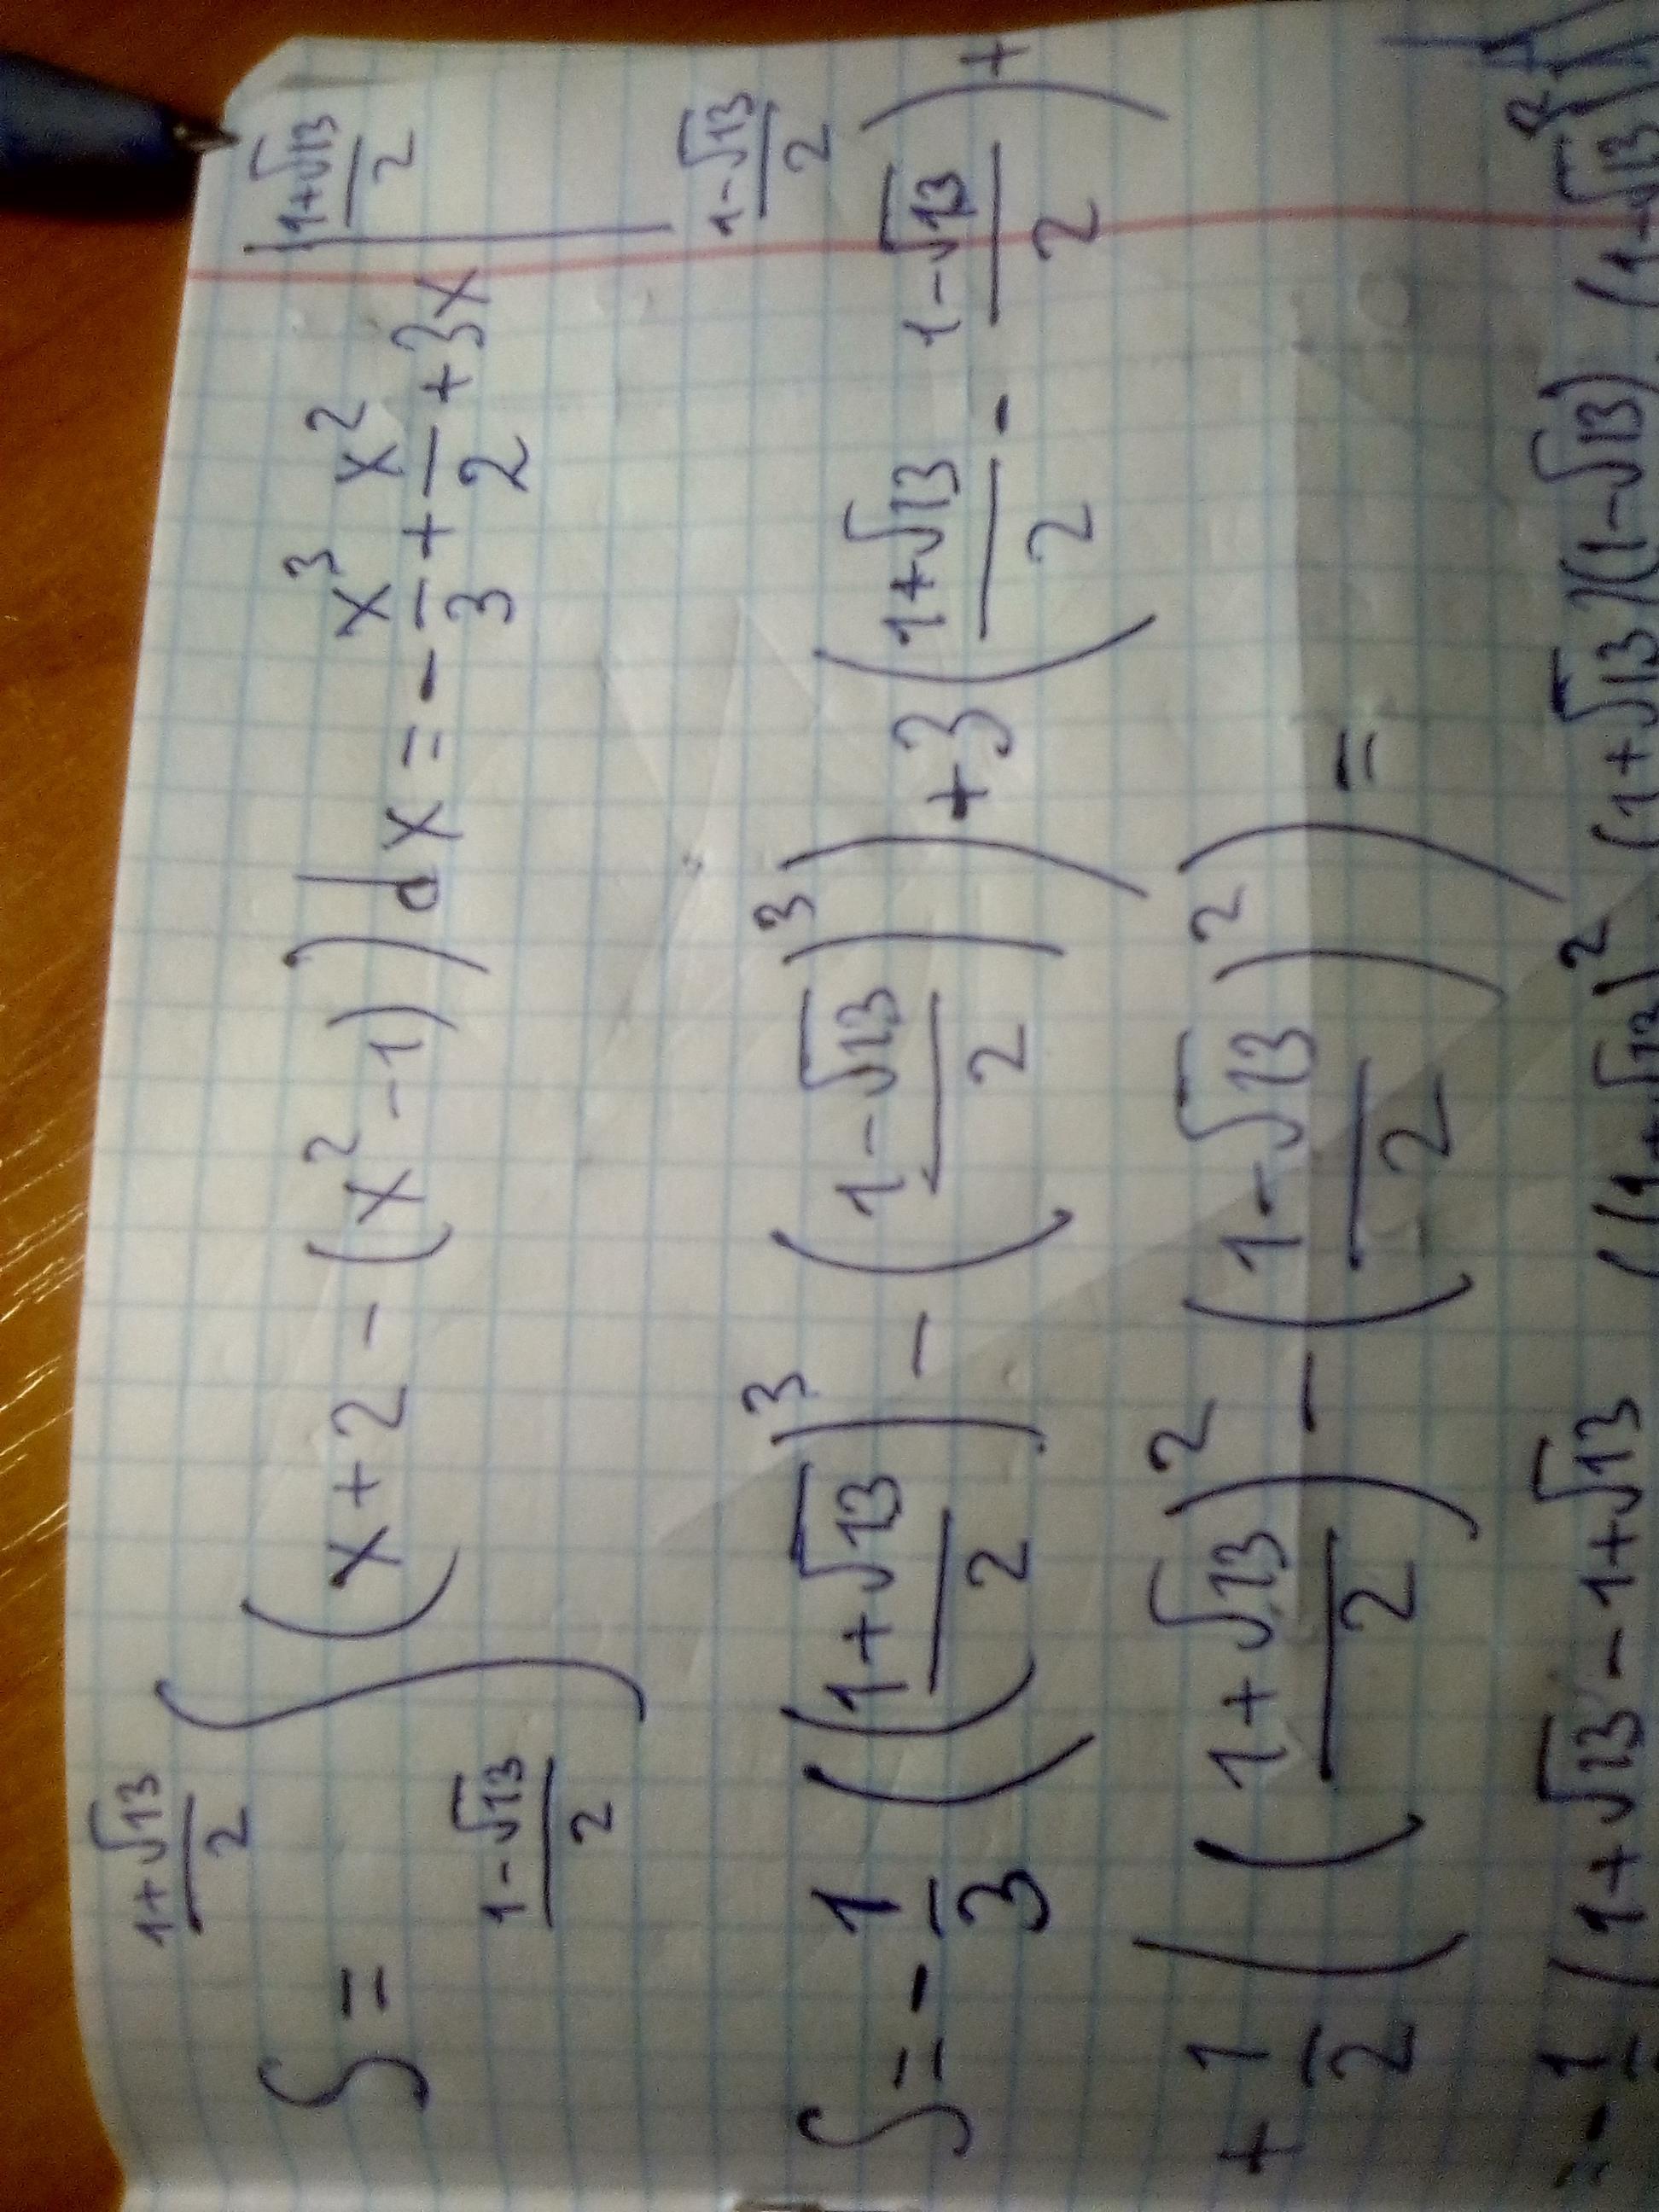 S = ∫_{(1-√13)/2}^{(1+√13)/2} (x + 2 - (x² - 1)) dx = - x³/3 + x²/2 + 3x |_{(1-√13)/2}^{(1+√13)/2}
S = - 1/3 (((1+√13)/2)³ - ((1-√13)/2)³) + 3 ((1+√13)/2 - (1-√13)/2) +
+ 1/2 (((1+√13)/2)² - ((1-√13)/2)²) =
= - 1/ (1+√13 - 1+√13 ((1+√13)² (1+√13)(1-√13) (1-√13)²